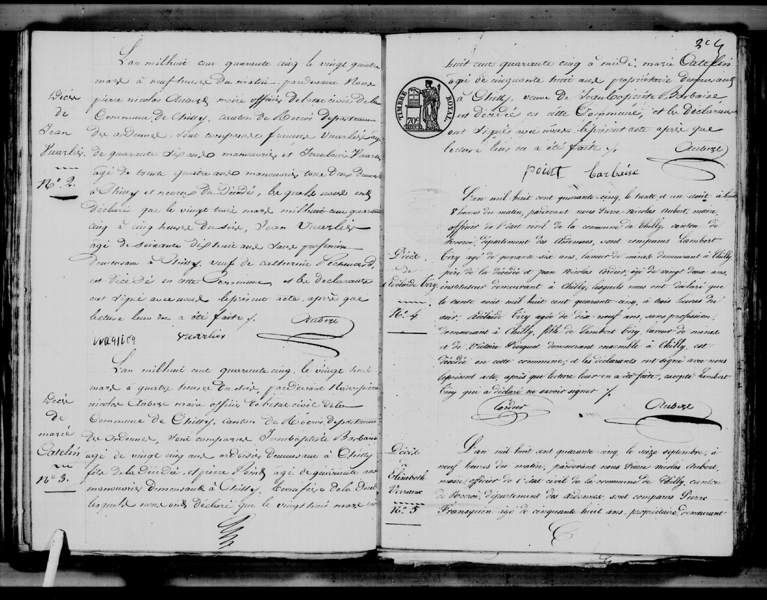 Décès
de
Jean
Vuarlier
N°. 2.
L'an mil huit cent quarante cinq le vingt quatre
mars à neuf heures du matin, pardevant Nous
pierre nicolas Aubré maire officier de l'état civil de la
Commune de Chilly, canton de Rocroi, département
des ardennes, sont comparus
de quarante six ans manouvrier et
agé de trente quatre ans manouvrier tous deux
à Chilly et neveux du Décédé, lesquels nous ont
déclaré que le vingt trois mars mil huit cent quarante
cinq à cinq heures du soir, Jean Vuarlier
agé de soixante dix huit ans sans profession
demeurant à Chilly, veuf de catherine
est Décédé en cette Commune et les déclarants
ont signé avec nous le présent acte, après que
lecture leur en a été faite.
Aubré
vuarlier
Décès
de
marie
Catelin
N°. 3.
L'an mil huit cent quarante cinq, le vingt huit
mars à quatre heures du soir pardevant Nous pierre
nicolas Aubré maire officier de l'état civil de la
Commune de Chilly, canton de Rocroi département
des ardennes, sont comparus Jean baptiste Barbaise
agé de vingt cinq ans ardoisier demeurant à Chilly
fils de la Décédée et pierre Poirit agé de quarante ans
manouvrier demeurant à Chilly, de la Décédée
lesquels nous ont déclaré que le vingt huit mars mil
huit cent quarante cinq à midi, marie Catelin
agé de cinquante huit ans propriétaire demeurant
à Chilly, veuve de Jean baptiste Barbaise
est décédée en cette Commune, et les déclarants
ont signé avec nous le présent acte après que
lecture leur en a été faite.
Aubré
barbaise
TIMBRE ROYAL
Décès
de
Adélaïde Cery
N°. 4
L'an mil huit cent quarante cinq, le trente et un août à
8 heures du matin, pardevant nous Pierre-Nicolas Aubert, maire,
officier de l'état civil de la commune de Chilly canton de
Rocroi, département des ardennes, sont comparus Lambert
Cery agé de ans, demeurant à Chilly
père de la décédée et Jean Nicolas Cordier, agé de vingt deux ans,
instituteur demeurant à Chilly, lesquels nous ont déclaré que
le trente août mil huit cent quarante cinq, à trois heures du
soir, Adélaïde Cery agée de dix neuf ans, sans profession,
demeurant à Chilly, fille de Lambert Cery
et de Victoire demeurant ensemble à Chilly, est
décédée en cette commune; et les déclarants ont signé avec nous
le présent acte, après que lecture leur en a été faite, excepté Lambert
Cery qui a déclaré ne savoir signer.
Cordier
Aubré
Décès
de
Elisabeth
N°. 5
L'an mil huit cent quarante cinq, le seize septembre, à
neuf heures du matin, pardevant nous Pierre Nicolas Aubert,
maire, officier de l'état civil de la commune de Chilly, canton
de Rocroi, département des ardennes, sont comparus Pierre
Franquin agé de cinquante huit ans, propriétaire, demeurant